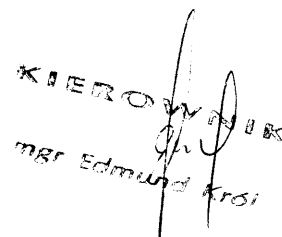 KIEROWNIK
mgr Edmund Król